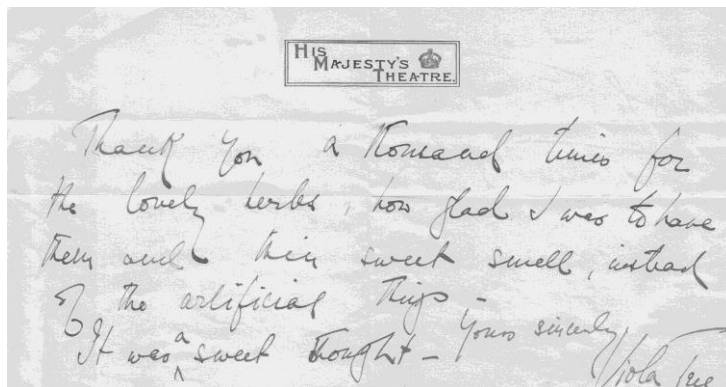 HIS
MAJESTY'S
THEATRE.
Thank you a thousand times for
the lovely herbs, how glad I was to have
them and their sweet smell, instead
of the artificial things –
It was a sweet thought – Yours sincerely
Viola Tree